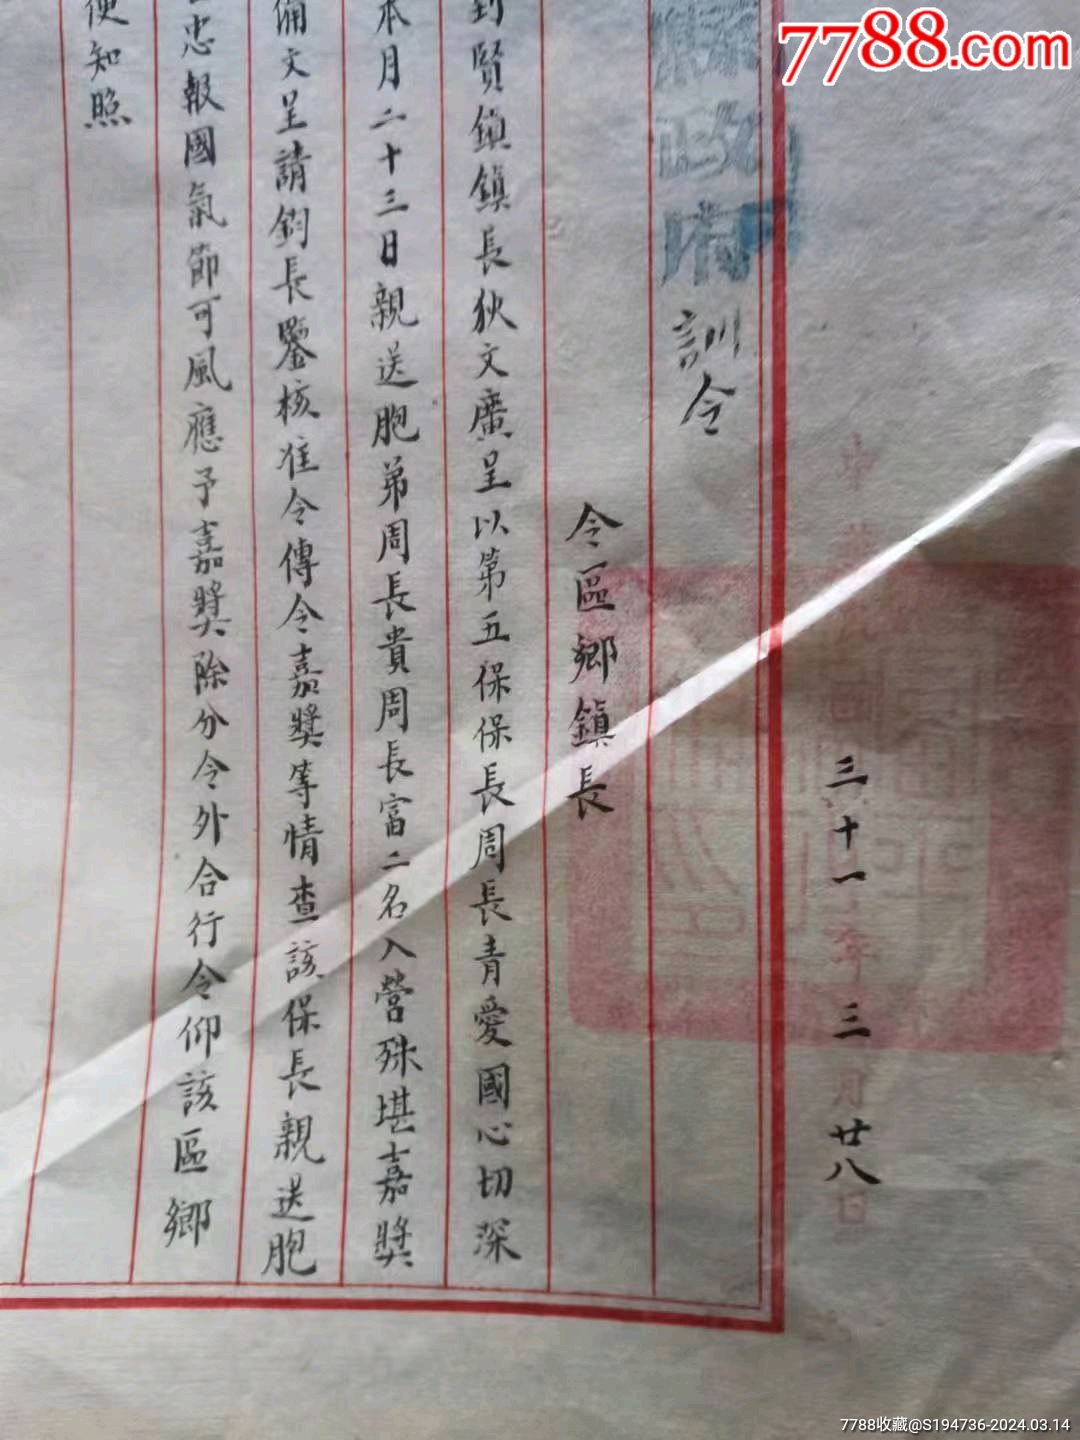 7788.com
縣政府
訓令
中華民國三十一年三月廿八日
令區鄉鎮長
到賢鎮鎮長狄文廣呈以第五保保長周長青愛國心切深
本月二十三日親送胞弟周長貴周長富二名入營殊堪嘉獎
備文呈請鈞長鑒核准令傳令嘉獎等情查該保長親送胞
忠報國氣節可風應予嘉獎除分令外合行令仰該區鄉
便知照
7788收藏@S194736-2024.03.14